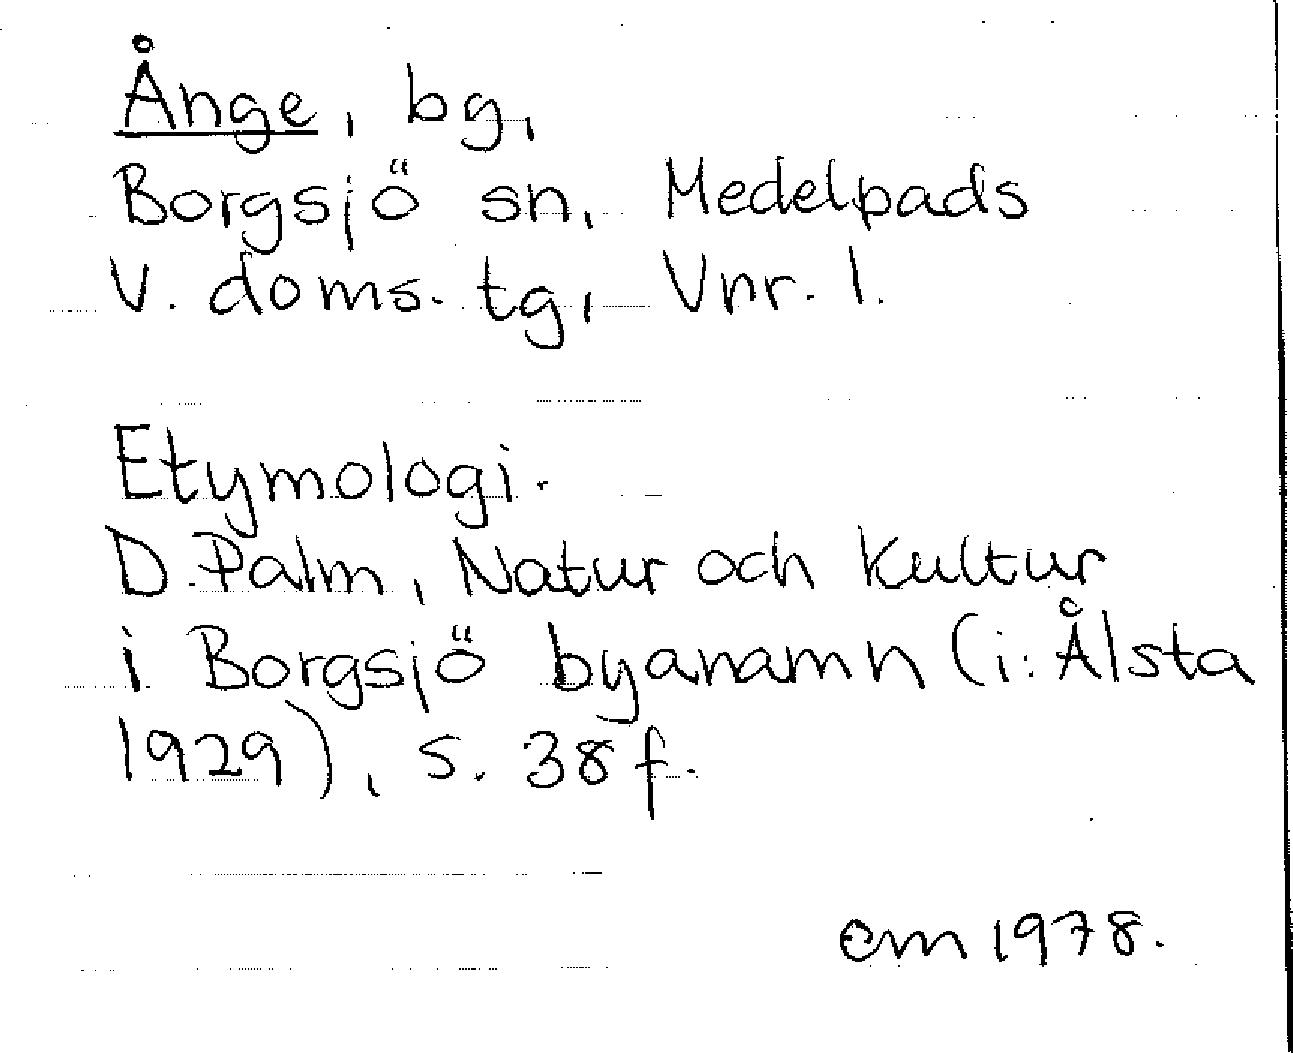 Ånge, bg,
Borgsjö sn, Medelpads
V. doms. tg, Vnr. 1.
Etymologi.
D. Palm, Natur och Kultur
i Borgsjö byanamn (i: Ålsta
1929), s. 38 f.
em 1978.